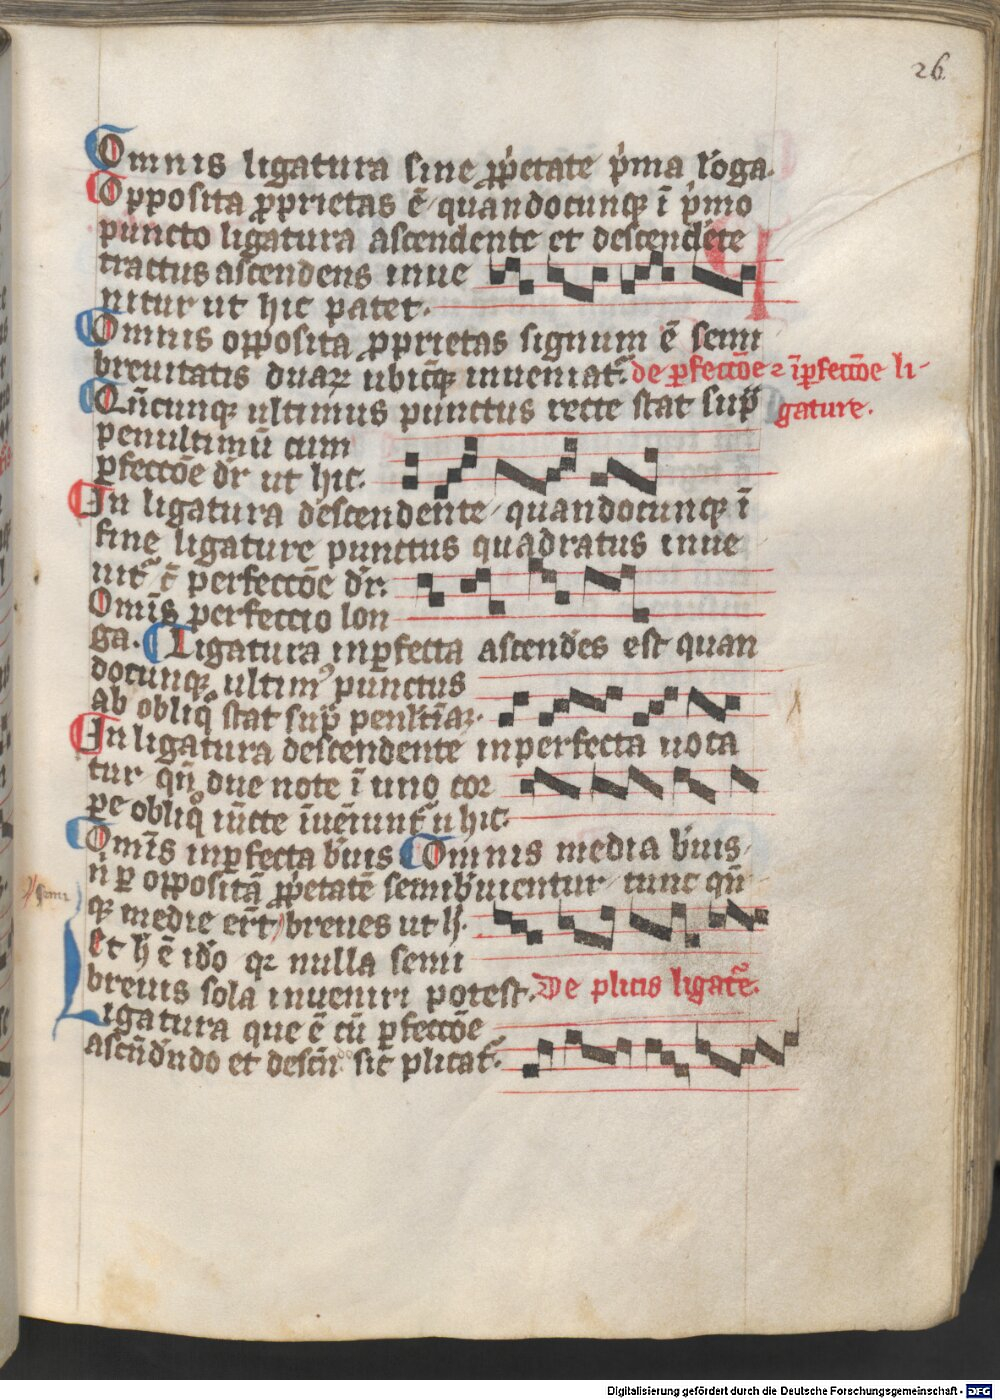 26
Omnis ligatura sine ꝓp̄etate p̍ma lōga.
Opposita ꝓprietas ē quandocunqꝫ ī p̍mo
puncto ligatura ascendente et descendēte
tractus ascendens inue
nitur ut hic patet.
Omnis opposita ꝓprietas signum ē semi
breuitatis duaꝝ ubicūqꝫ inueniat᷑.
de ꝑfectōe ⁊ īꝑfectōe li-
gature.
Qn̄cunqꝫ ultimus punctus recte stat sup̄
penultimū cum
ꝑfectōe dr̄ ut hic.
In ligatura descendente quandocunqꝫ ī
fine ligature punctus quadratus inue
nit᷑ c̄ perfectōe dr̄.
Om̄is perfectio lon
ga. Ligatura inꝑfecta ascendēs est quan
docunqꝫ ultimꝰ punctus
ab obliqͦ stat sup̄ penl̄timaꝝ.
In ligatura descendente inperfecta nota
tur qn̄ due note ī uno cor
pe obliqͦ iūcte īueiunt᷑ ū hic.
Om̄is inꝑfecta b̄uis Omnis media b̄uis,
n̍ ꝑ oppositā ꝓp̄etatē semib̄uientur tunc qn̄
qꝫ medie er̄t breues ut h̄.
semi
et h̄ ē id̄o qꝛ nulla semi
breuis sola inueniri potest.
De plicis ligat᷑e.
Ligatura que ē cū ꝑfectōe
ascn̄dn̄do et descn̄ sit plicat᷑.
Digitalisierung gefördert durch die Deutsche Forschungsgemeinschaft - DFG